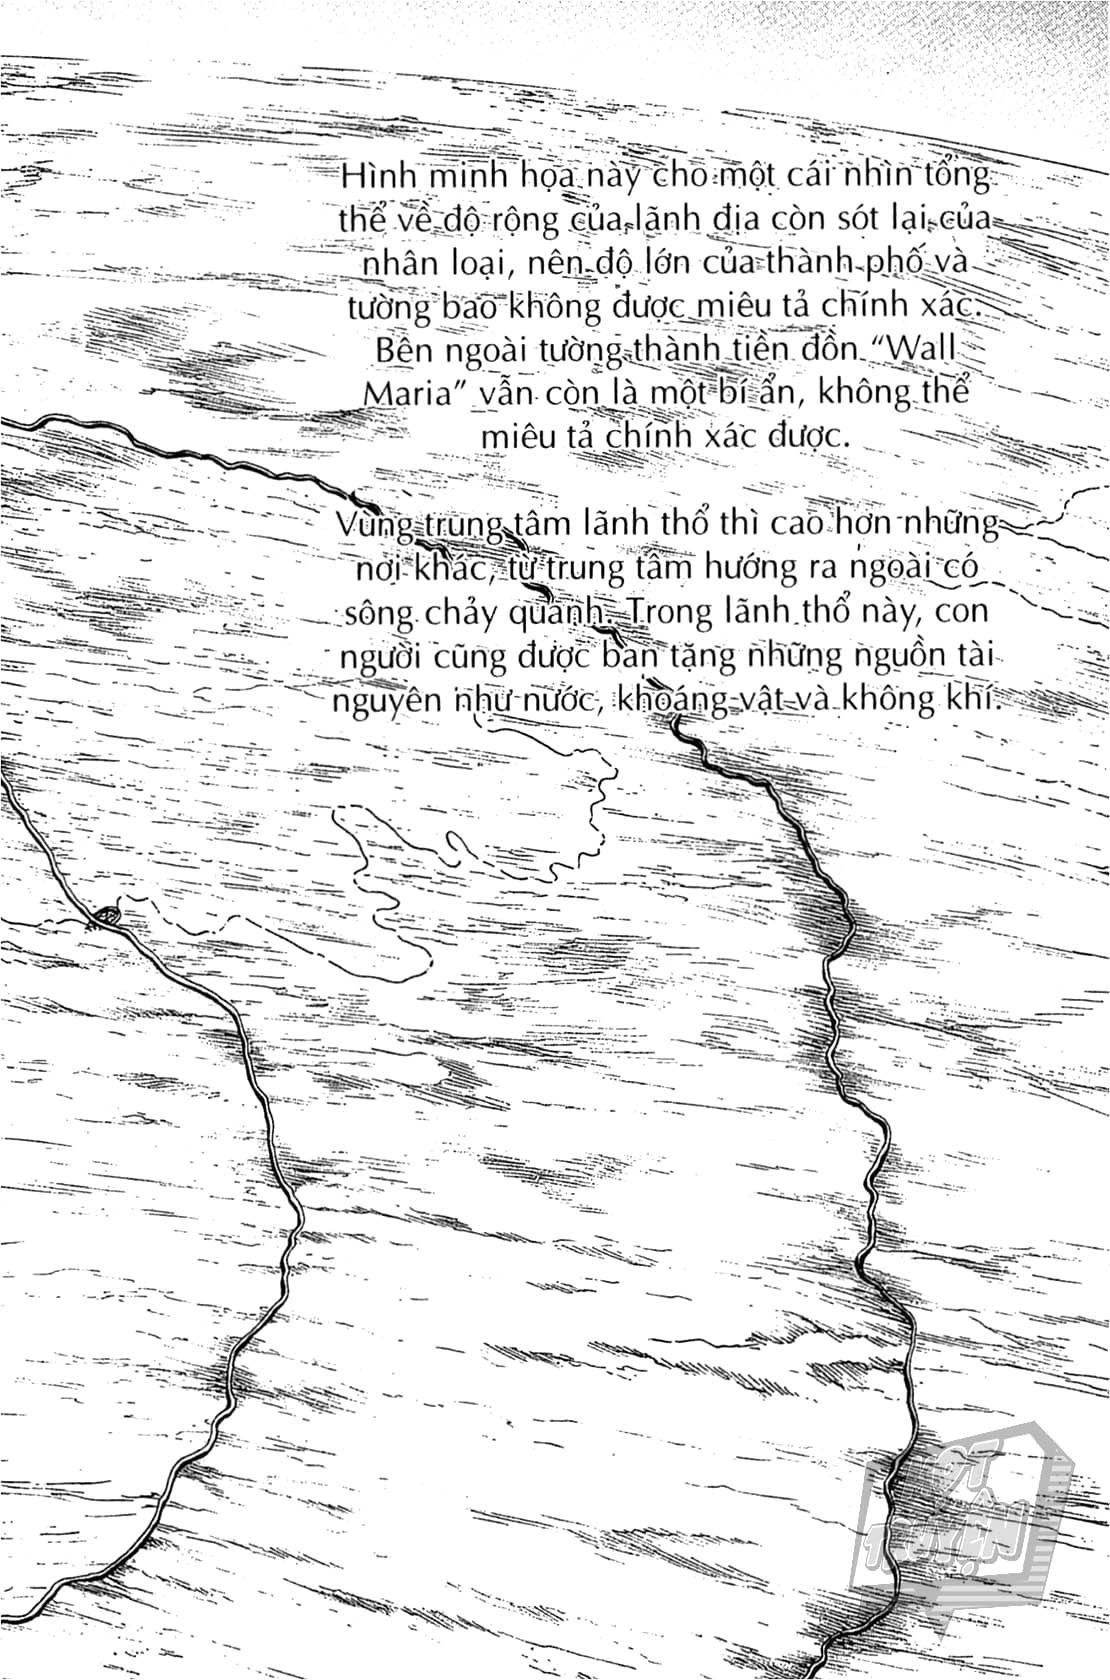 Hình minh họa này cho một cái nhìn tổng
thể về độ rộng của lãnh địa còn sót lại của
nhân loại, nên độ lớn của thành phố và
tường bao không được miêu tả chính xác.
Bên ngoài tường thành tiền đồn "Wall
Maria" vẫn còn là một bí ẩn, không thể
miêu tả chính xác được.
Vùng trung tâm lãnh thổ thì cao hơn những
nơi khác, từ trung tâm hướng ra ngoài có
sông chảy quanh. Trong lãnh thổ này, con
người cũng được ban tặng những nguồn tài
nguyên như nước, khoáng vật và không khí.
OT
TRUYỆN